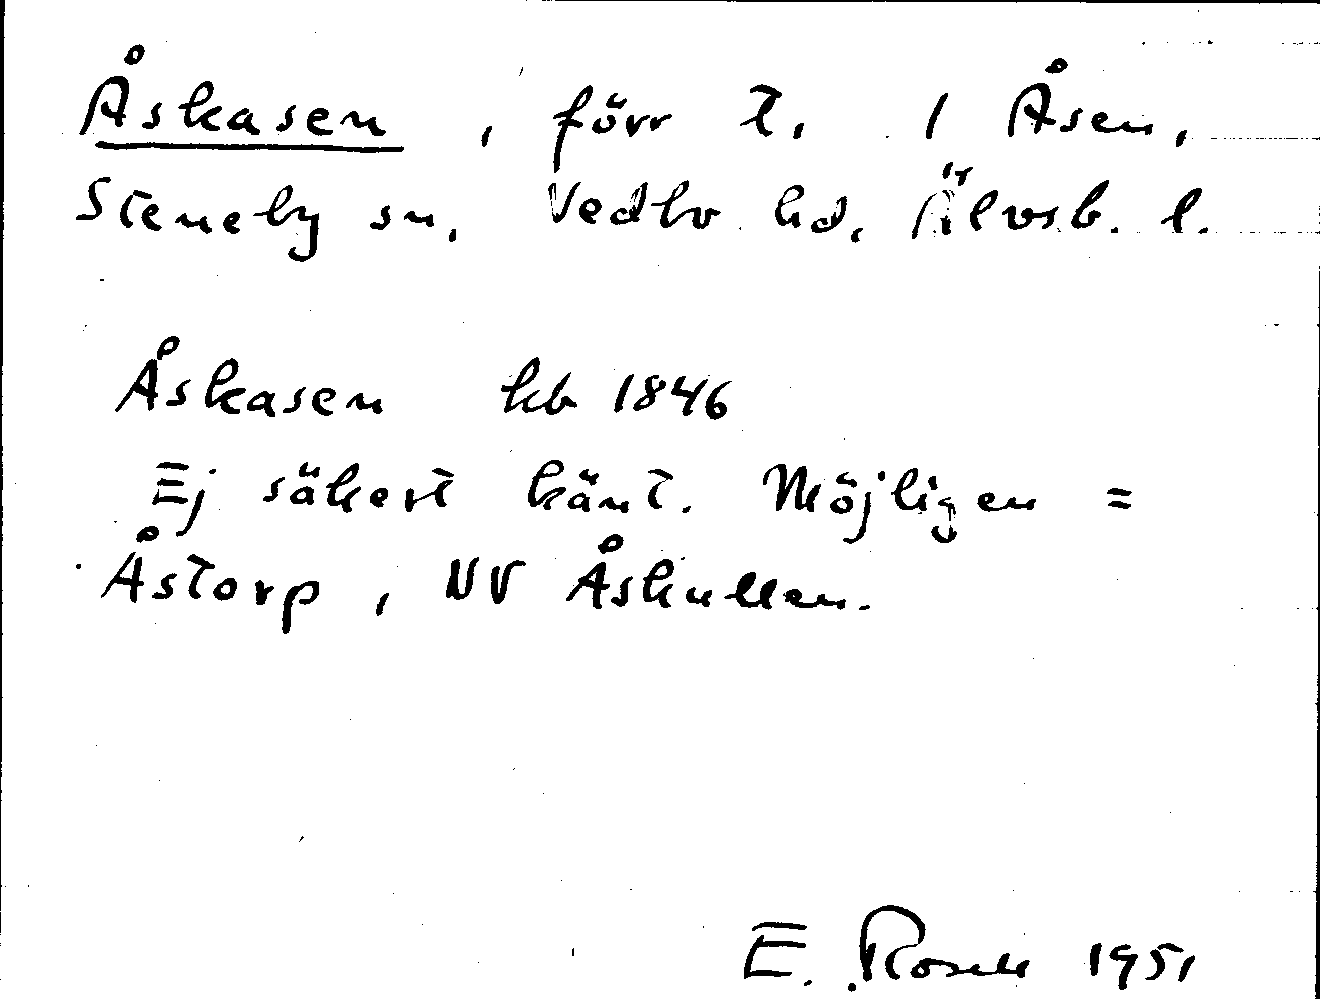 Åskasen, förr t. 1 Åsen,
Steneby sn, Vedbo hd, Älvsb. l.
Åskasen kb 1846
Ej säkert känt. Möjligen =
Åstorp, NV Åskullen.
E. Rosell 1951